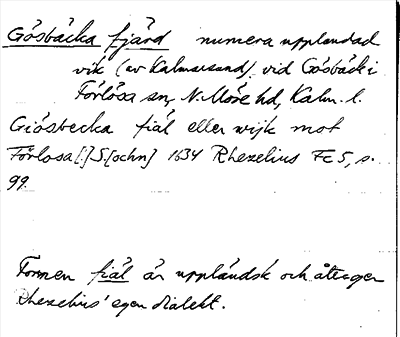 Gåsbäcka fjärd numera upplandad
vik (av Kalmarsund) vid Gåsbäck i
Förlösa sn, N. Möre hd, Kalm. l.
Giösbecka fiäl eller wijk mot
Förlosa[:] S:[ochn] 1634 Rhezelius Fc 5, s.
99.
Formen fiäl är uppländsk och återger
Rhezelius' egen dialekt.